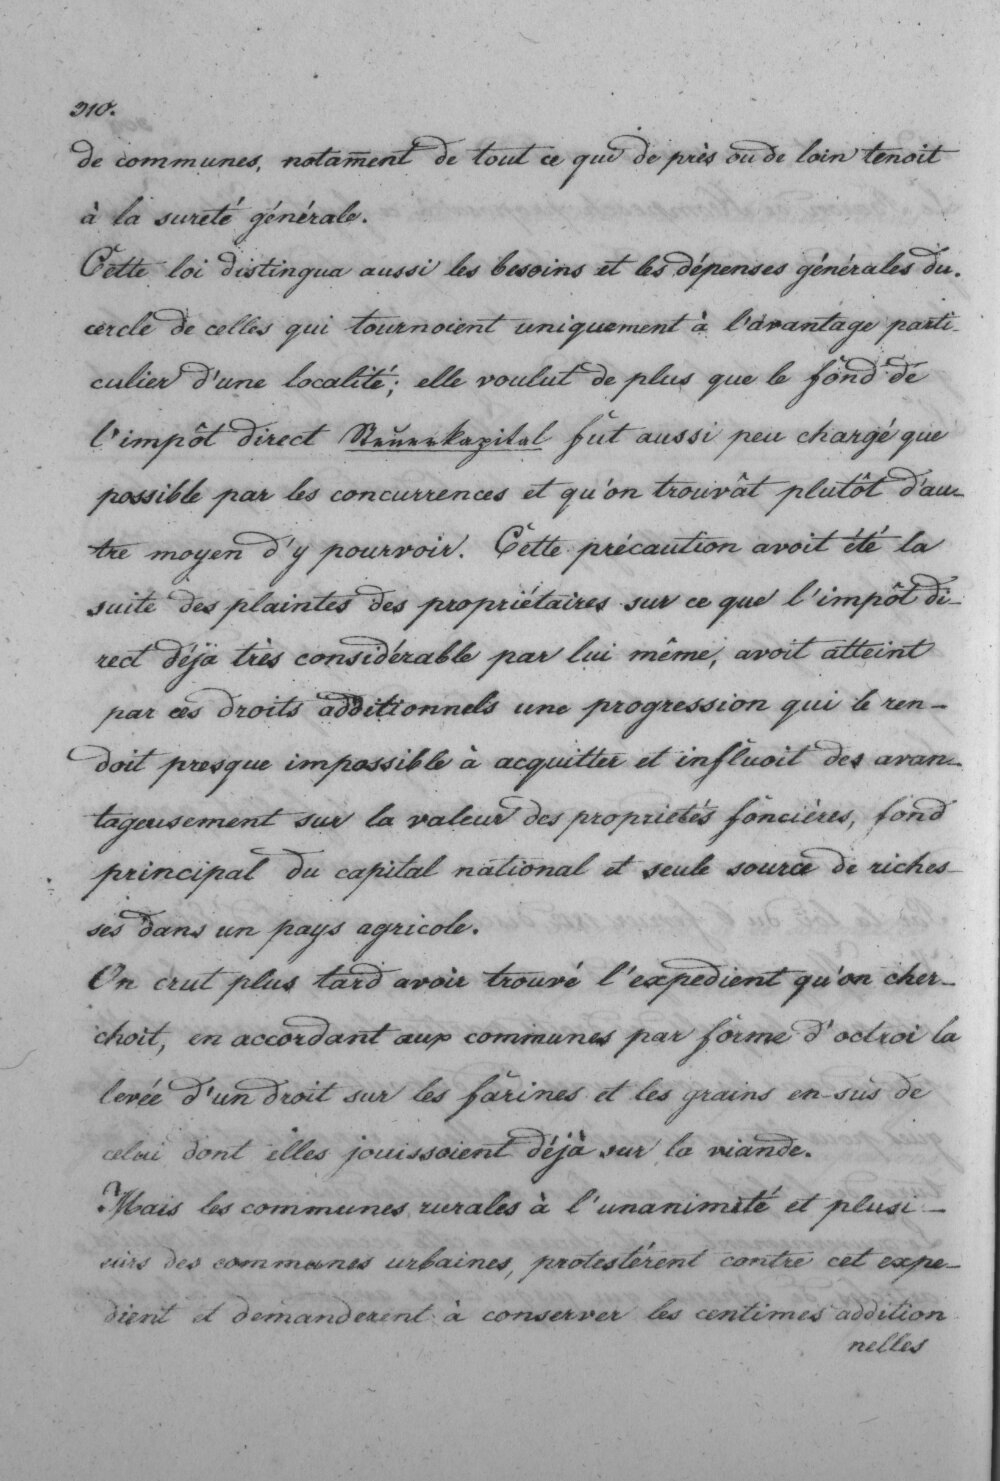 310.
de communes, notam̄ent de tout ce qui de près ou de loin tenoit
à la sureté générale.
Cette loi distingua aussi les besoins et les dépenses générales du
cercle de celles qui tournoient uniquement à l'avantage parti-
culier d'une localité; elle voulut de plus que le fond de
l'impôt direct Steuerkapital fut aussi peu chargé que
possible par les concurrences et qu'on trouvât plutôt d'au-
tre moyen d'y pourvoir. Cette précaution avoit été la
suite des plaintes des propriétaires sur ce que l'impôt di-
rect déja très considérable par lui même, avoit atteint
par ces droits additionnels une progression qui le ren-
doit presque impossible à acquitter et influoit des avan-
tageusement sur la valeur des propriétés foncières, fond
principal du capital national et seule source de riches-
ses dans un pays agricole.
On crut plus tard avoir trouvé l'expedient qu'on cher-
choit, en accordant aux communes par forme d'octroi la
levée d'un droit sur les farines et les grains en-sus de
celui dont elles jouissoient déjà sur la viande.
Mais les communes rurales à l'unanimité et plusi-
eurs des communes urbaines, protestérent contre cet expe-
dient et demanderent à conserver les centimes addition
nelles